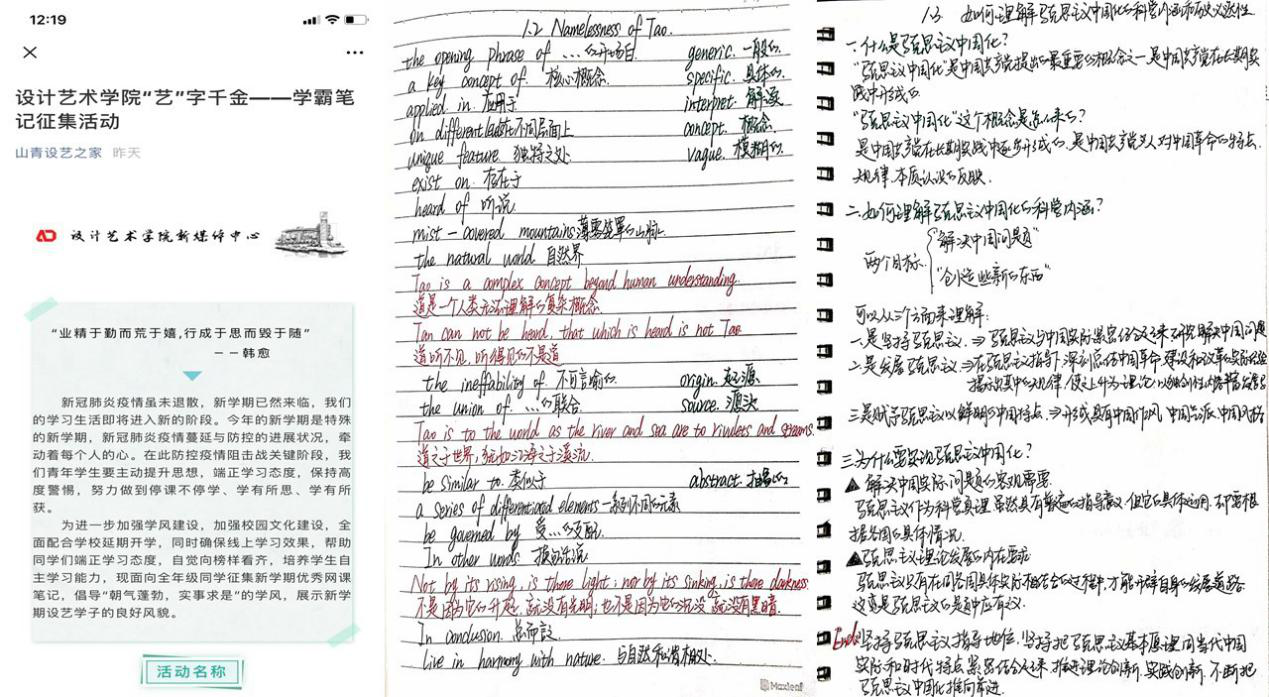 12:19
设计艺术学院“艺”字千金——学霸笔
记征集活动
山青设艺之家 昨天
设计艺术学院新媒体中心
“业精于勤而荒于嬉,行成于思而毁于随”
——韩愈
新冠肺炎疫情虽未退散，新学期已然来临，我们
的学习生活即将进入新的阶段。今年的新学期是特殊
的新学期，新冠肺炎疫情蔓延与防控的进展状况，牵
动着每个人的心。在此防控疫情阻击战关键阶段，我
们青年学生要主动提升思想，端正学习态度，保持高
度警惕，努力做到停课不停学、学有所思、学有所
获。
为进一步加强学风建设，加强校园文化建设，全
面配合学校延期开学，同时确保线上学习效果，帮助
同学们端正学习态度，自觉向榜样看齐，培养学生自
主学习能力，现面向全年级同学征集新学期优秀网课
笔记，倡导“朝气蓬勃，实事求是”的学风，展示新学
期设艺学子的良好风貌。
活动名称
1.2 Namelessness of Tao.
the opening phrase of ...的开场白 generic. 一般的
a key concept of. 核心概念 specific. 具体的
applied in. 应用于 interpret. 解读
on different levels 在不同层面上 concept. 概念
unique feature. 独特之处 vague. 模糊的
exist on. 存在于
heard of 听说
mist-covered mountains 薄雾笼罩的山脉
the natural world 自然界
Tao is a complex concept beyond human understanding.
道是一个人类无法理解的复杂概念
Tao can not be heard, that which is heard is not Tao
道听不见，听得见的不是道
the ineffability of 不可言喻的 origin. 起源
the union of. ...的联合 source. 源头
Tao is to the world as the river and sea are to rivulets and streams.
道之于世界，犹如江海之于溪流
be similar to. 类似于 abstract. 抽象的
a series of differentiated elements 一系列不同的元素
be governed by 受...的支配
In other words 换句话说
Not by its rising, is there light, nor by its sinking, is there darkness
不是因为它的升起，就没有光明；也不是因为它的沉没，就没有黑暗.
In conclusion. 总而言之
live in harmony with nature. 与自然和谐相处.
Maxleaf
1.3 如何理解马克思主义中国化的科学内涵和历史必然性
一.什么是马克思主义中国化？
“马克思主义中国化”是中国共产党提出的最重要的概念之一.是中国共产党在长期实
践中形成的
“马克思主义中国化”这个概念是怎么来的？
是中国共产党在长期实践中逐步形成的.是中国共产党人对中国革命的特点、
规律、本质认识的反映.
二.如何理解马克思主义中国化的科学内涵？
两个目标 “解决中国问题”
“创造些新的东西”
可以从三个方面来理解:
一.是坚持马克思主义.⇒马克思主义与中国实际紧密结合起来研究解决中国问题
二.是发展马克思主义⇒在马克思主义指导下,深刻总结中国革命、建设和改革的实际经验
三是赋予马克思主义以鲜明的中国特点.⇒形成具有中国作风、中国气派、中国风格
三.为什么要实现马克思主义中国化？
▲解决中国实际问题的客观需要
马克思主义作为科学真理虽然具有普遍的指导意义,但它的具体运用,却要根
据各国的具体情况.
▲马克思主义理论发展的内在要求
马克思主义只有在同各国具体实际相结合的过程中,才能开辟自身的发展道路
这就是马克思主义的题中应有之义
End:坚持马克思主义指导地位.坚持把马克思主义基本原理同当代中国
实际和时代特点紧密结合起来.推进理论创新、实践创新,不断把
马克思主义中国化推向前进.